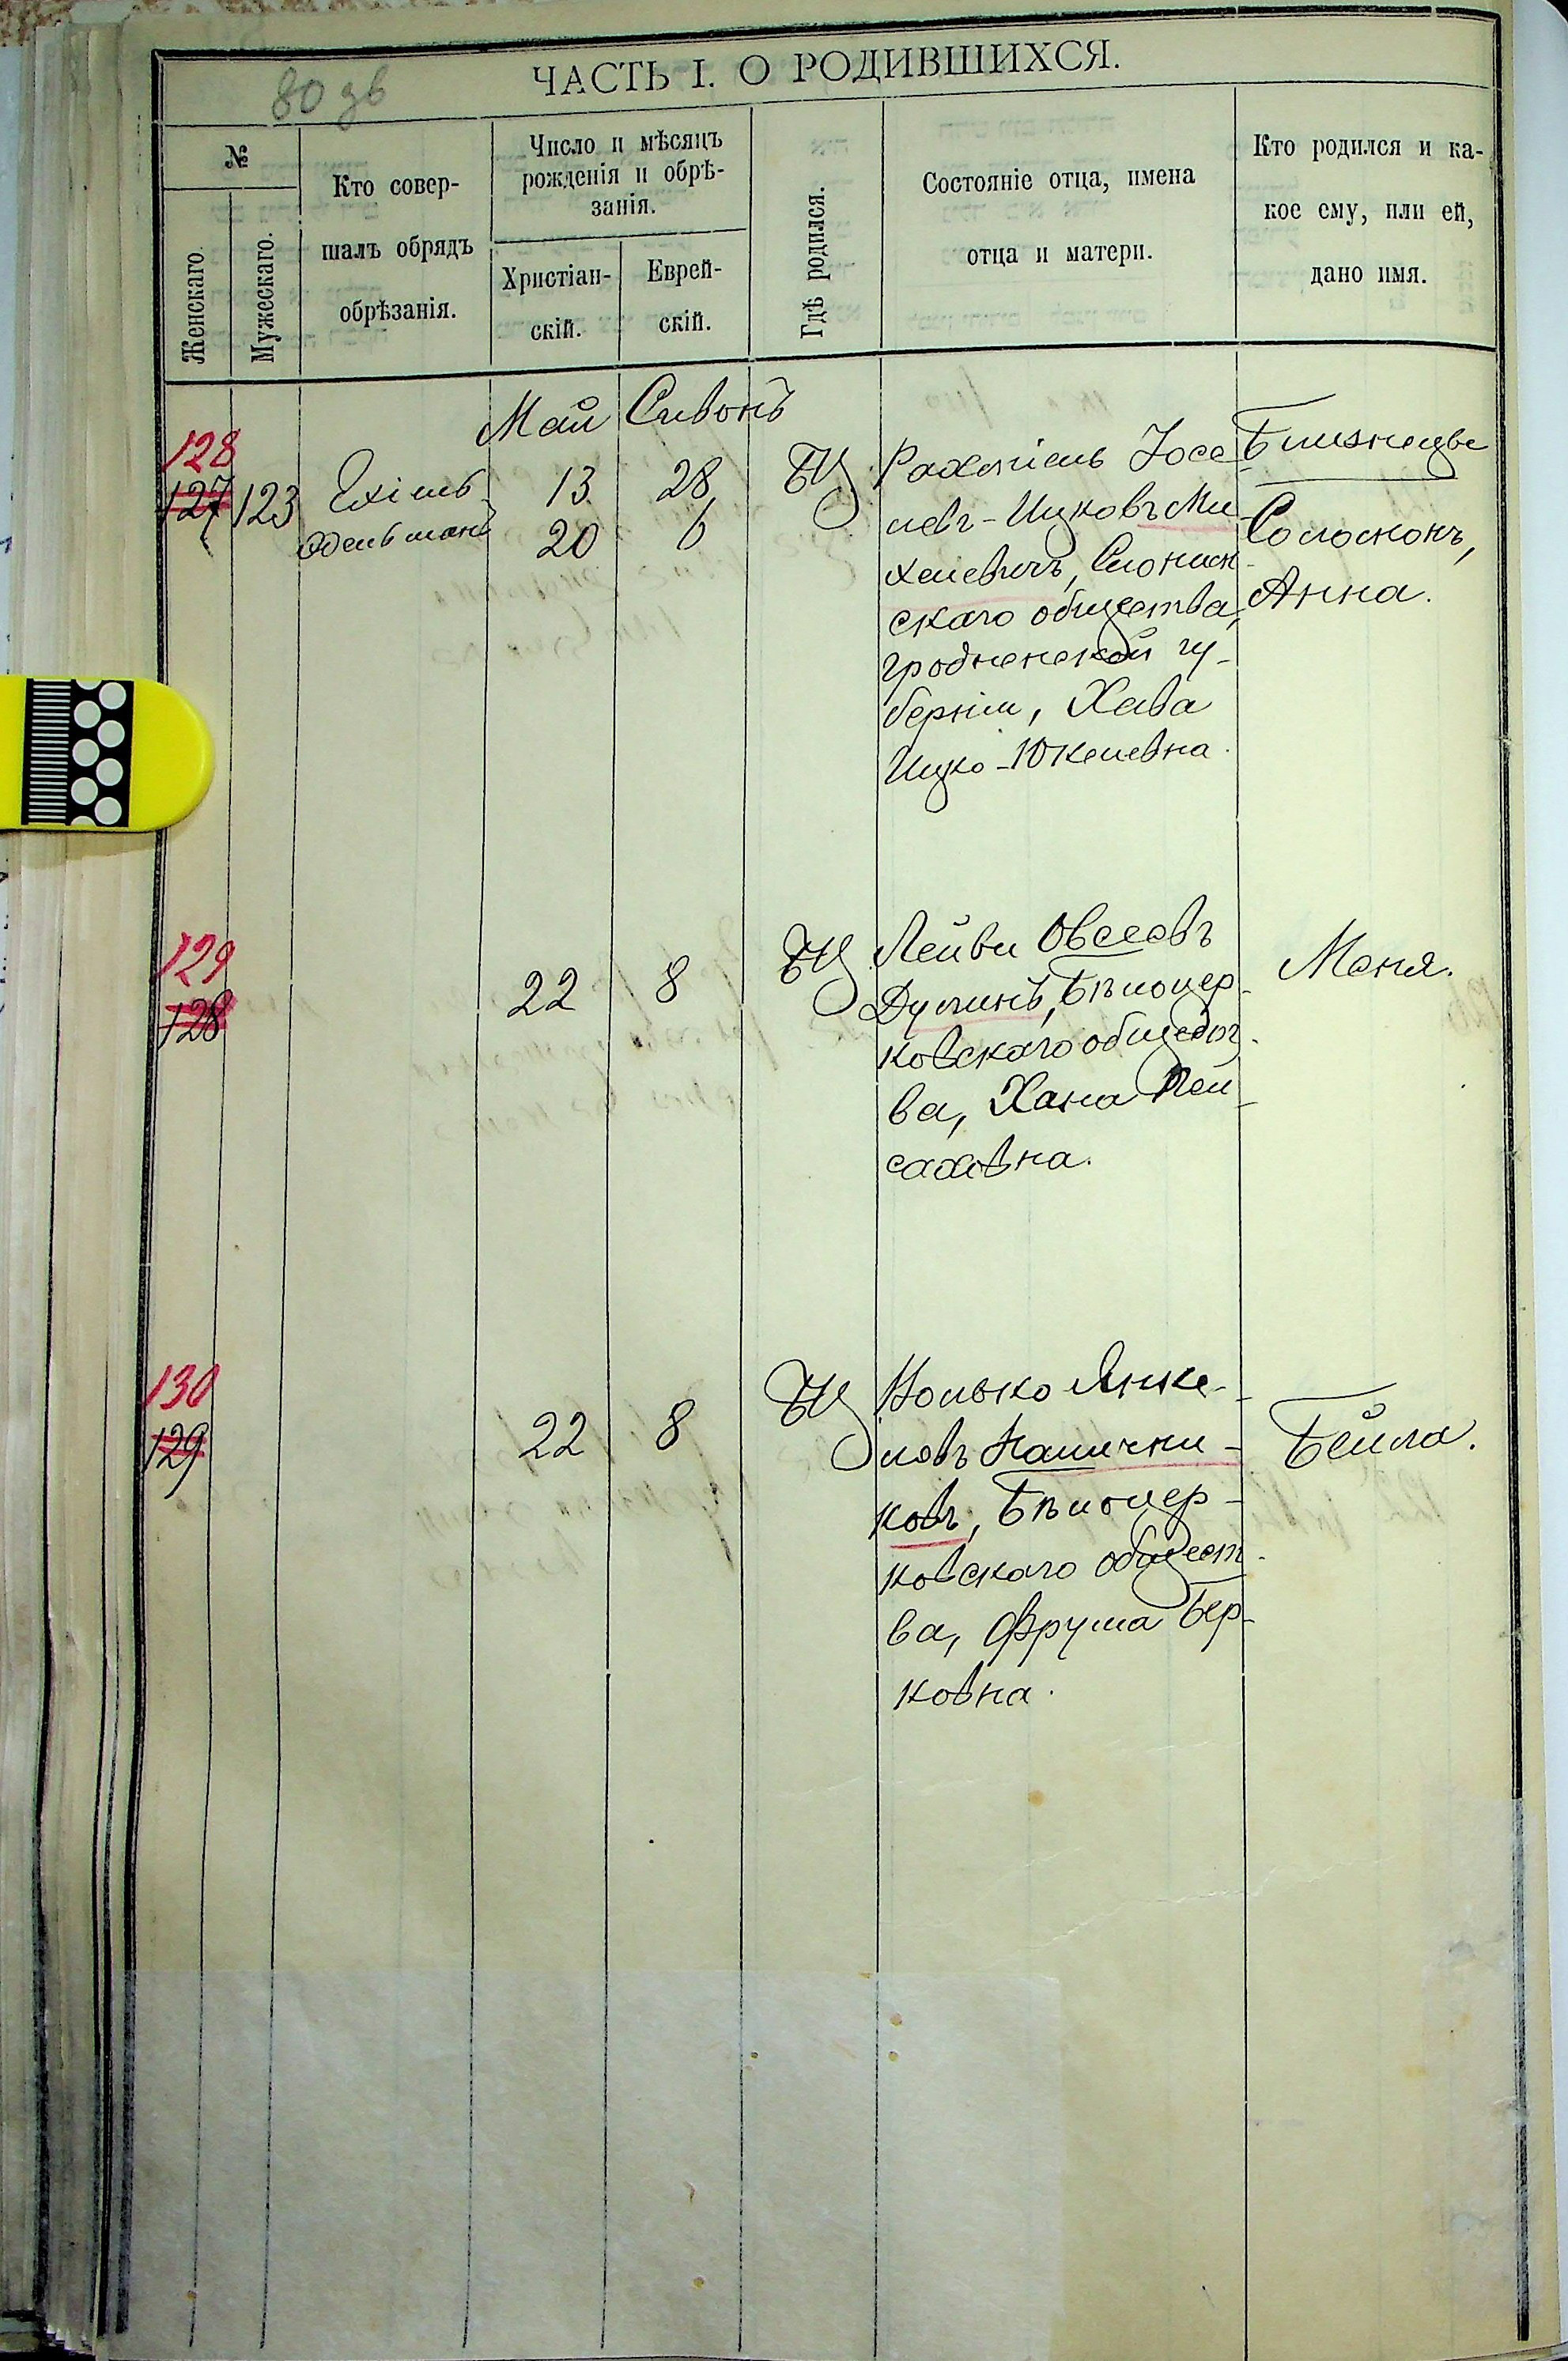 80 зв
ЧАСТЬ I. О РОДИВШИХСЯ.
№
Женскаго.
Мужескаго.
Кто совер-
шалъ обрядъ
обрѣзанія.
Число и мѣсяцъ
рожденія и обрѣ-
занія.
Христіан-
скій.
Еврей-
скій.
Гдѣ родился.
Состояніе отца, имена
отца и матери.
Кто родился и ка-
кое ему, или ей,
дано имя.
Май Сивонъ
128
127 123
Ехіель
Эдельманъ
13 28
20 6
БЦ
Рахміель Іосе-
левъ-Ицковъ Ми-
хелевичъ, Слоним-
скаго общества,
гродненской гу-
берніи, Хава
Ицко-Юкелевна.
Близнецы
Соломонъ,
Анна.
129
128
22 8
БЦ
Лейви Овсеевъ
Дулинъ, Бѣлоцер-
ковскаго общест-
ва, Хана Пей-
саховна.
Маня.
130
129
22 8
БЦ
Волько Янке-
левъ Калични-
ковъ, Бѣлоцер-
ковскаго общест-
ва, Фрума Бер-
ковна.
Бейла.